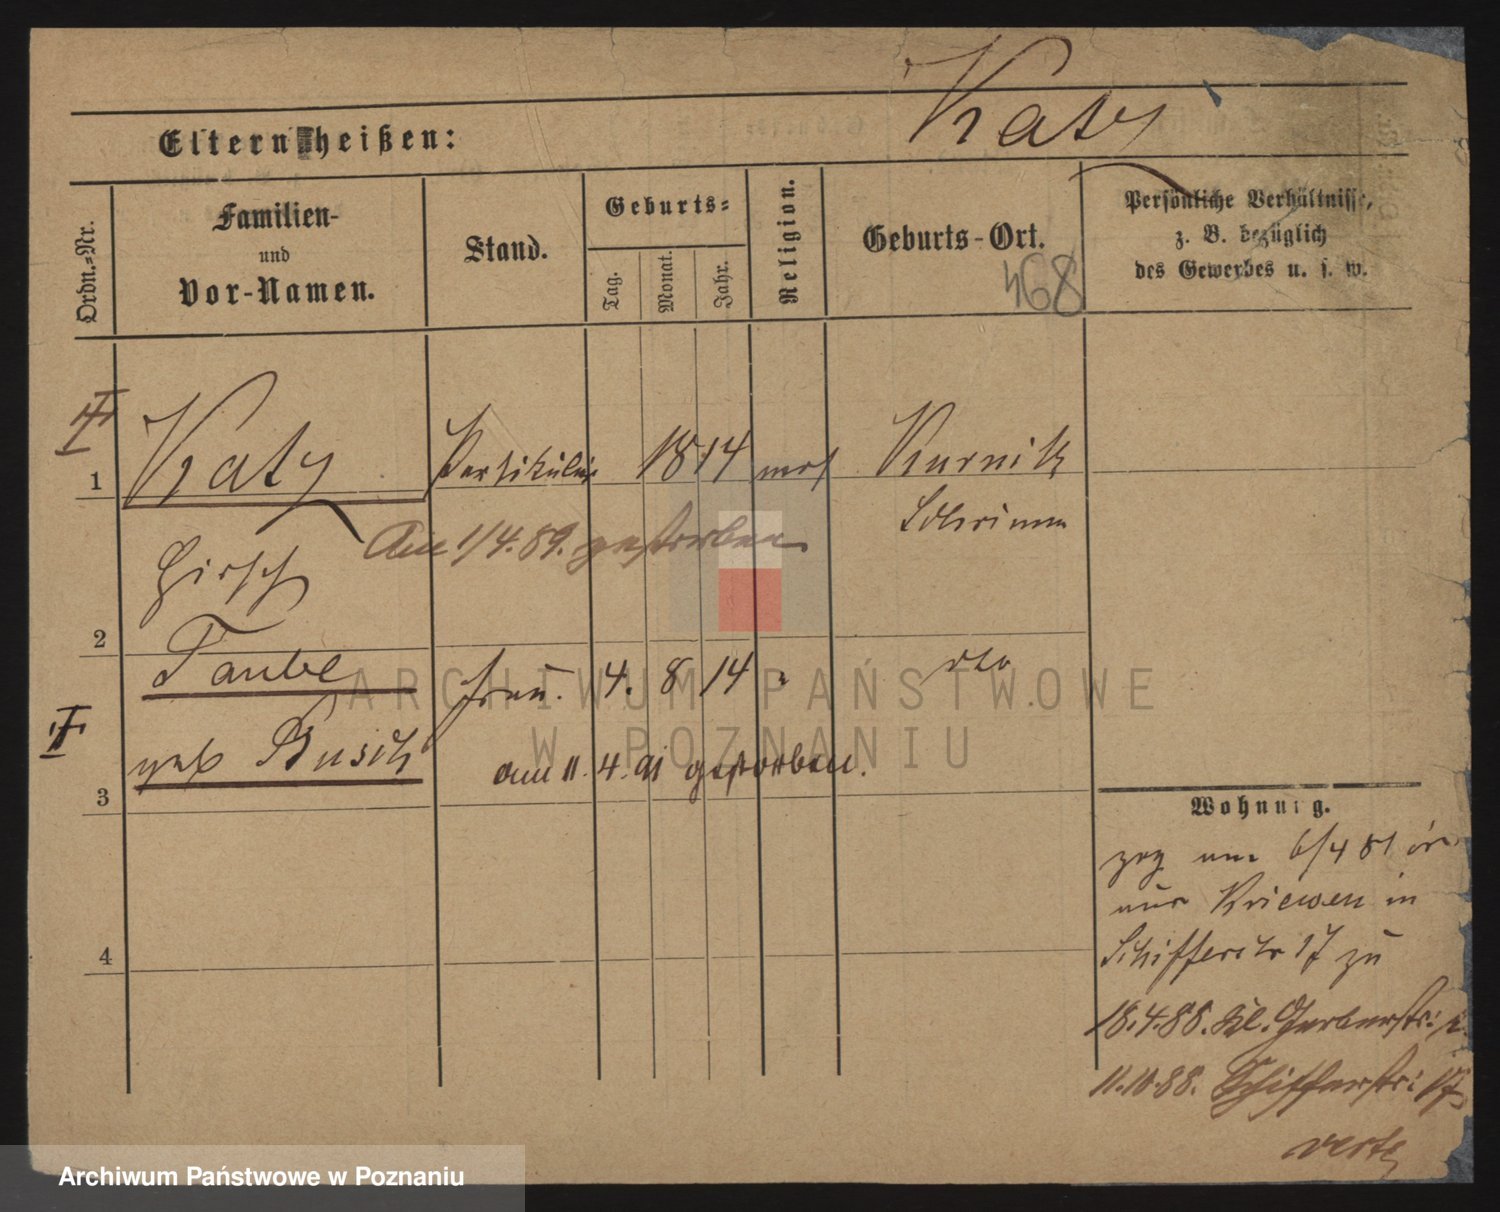 Katz
Eltern heißen:
Ordn.=Nr.
Familien-
und
Vor-Namen.
Stand.
Geburts=
Tag.
Monat.
Jahr.
Religion.
Geburts-Ort.
468
Persönliche Verhältnisse,
z. B. bezüglich
des Gewerbes u. s. w.
1 Katz Partikulier 1814 mos Kurnik
Schrimm
Am 1/4. 89. gestorben
Hirsch
2
Taube Frau. 4. 8 14 " dto
geb Busch
am 11. 4. 91 gestorben.
3
Wohnung.
zog am 6/4 81
aus Kriewen in
Schifferstr 17 zu
4
18.4.88. Kl. Gerberstr:
11.10.88. Schifferstr: 17
verte
ARCHIWUM PAŃSTWOWE
W POZNANIU
Archiwum Państwowe w Poznaniu